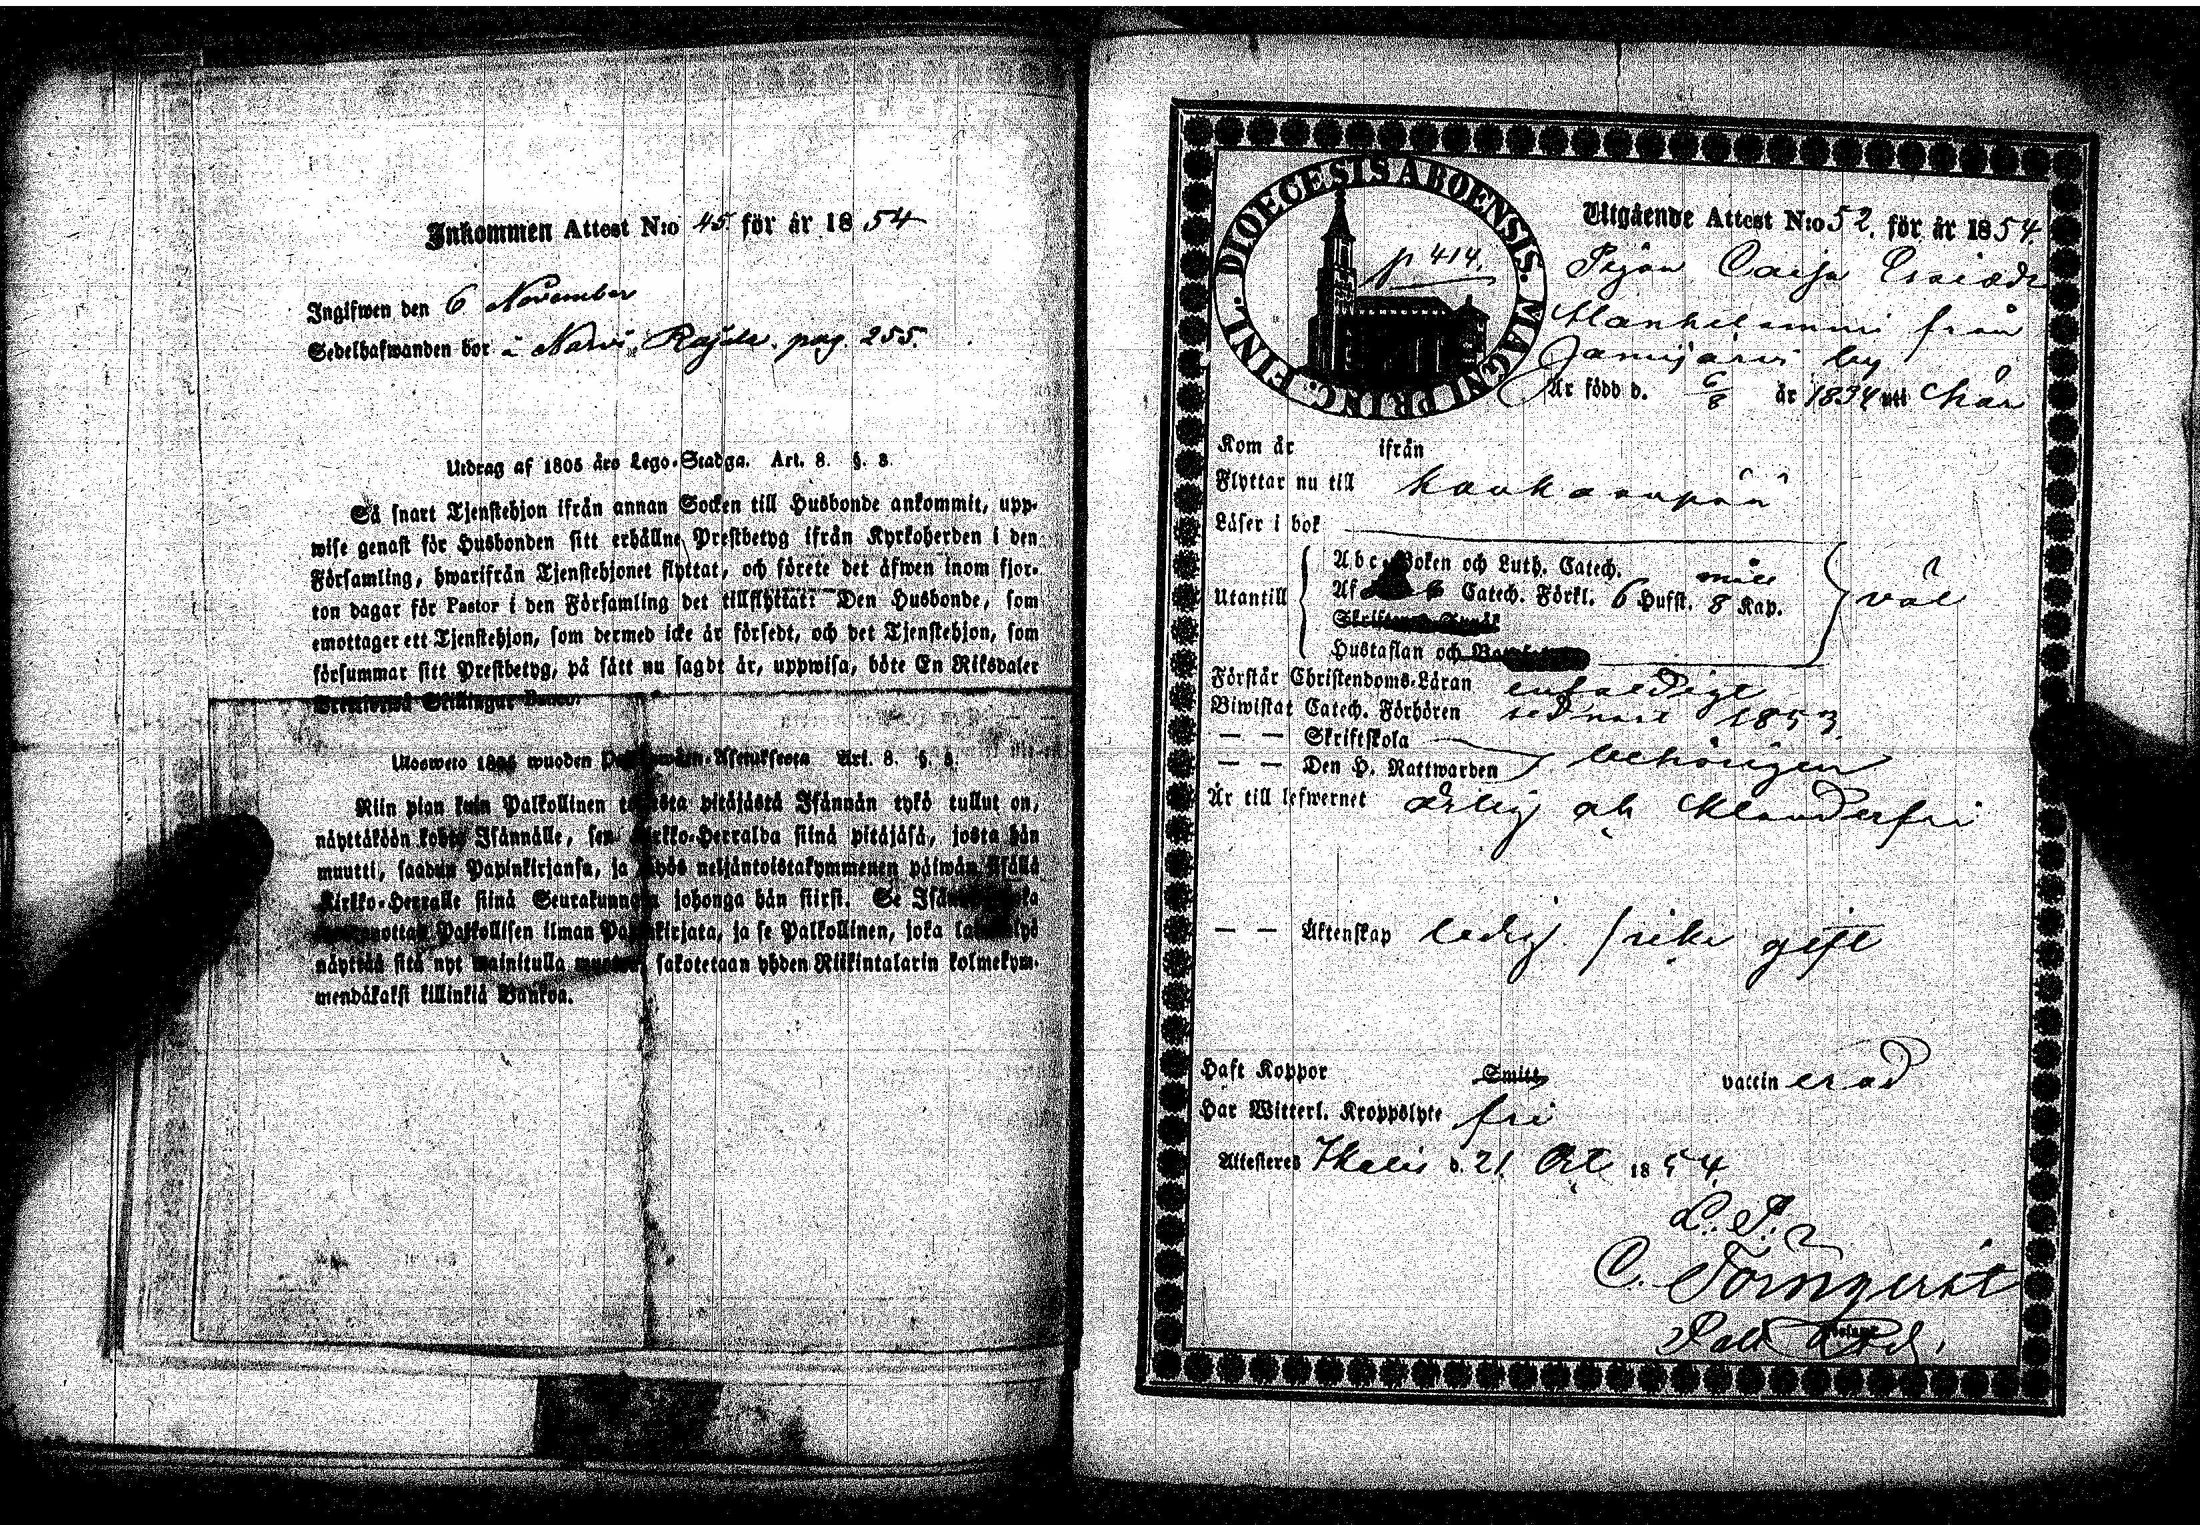 Inkommen Attest N:o 45. för år 1854
Ingifwen den 6 November
Sedelhafwanden bor å Narvi Rajala. pag. 255.
Utdrag af 1805 års Lego-Stadga. Art. 8. §. 3.
Så snart Tjenstehjon ifrån annan Socken till Husbonde ankommit, upp-
wise genast för Husbonden sitt erhållne Prestbetyg ifrån Kyrkoherden i den
Församling, hwarifrån Tjenstehjonet flyttat, och förete det äfwen inom fjor-
ton dagar för Pastor i den Församling det tillflyttat: Den Husbonde, som
emottager ett Tjenstehjon, som dermed icke är försedt, och det Tjenstehjon, som
försummar sitt Prestbetyg, på sätt nu sagdt är, uppwisa, böte En Riksdaler
Trettiotwå Skillingar Banco.
Ulosweto 1805 wuoden Asetuksesta Art. 8. §. 3.
Niin pian kuin Palkollinen toisesta pitäjästä Isännän tykö tullut on,
näyttäköön kohta Isännälle, sen Kirkko-Herralda siinä pitäjäsä, josta hän
muutti, saadun Papinkirjansa, ja myös neljäntoistakymmenen päiwän sisällä
Kirkko-Herralle siinä Seurakunnasa johonga hän siirsi. Se Isändä joka
Palkollisen ilman Papinkirjata, ja se Palkollinen, joka
näyttää sitä nyt mainitulla sakotetaan yhden Riikintalarin kolmekym-
mendäkaksi killinkiä Bankoa.
DIOECESIS ABOENSIS. MAGNI PRINC. FINL.
p 414.
Utgående Attest N:o 52. för år 1854.
Pigan Caisa
från
Jämijärvi by
Är född d. 6/8 år 1834 uti
Kom år ifrån
Flyttar nu till Kankaanpää
Läser i bok
Utantill
Abc-Boken och Luth. Catech.
Af Catech. Förkl. 6 Hufst. 8 Kap.
väl
Hustaflan och
Förstår Christendoms-Läran enfaldigt
Biwistat Catech. Förhören sednast 1853.
— — Skriftskola
— — Den H. Nattwarden behörigen
Är till lefwernet ärlig och klanderfri
— — Äktenskap ledig. icke gift
Haft Koppor Smitt vaccinerad
Har Witterl. Kroppslyte fri
Attesteras Ikalis d. 21 Oct 1854.
L. P.
C. Törnqvist